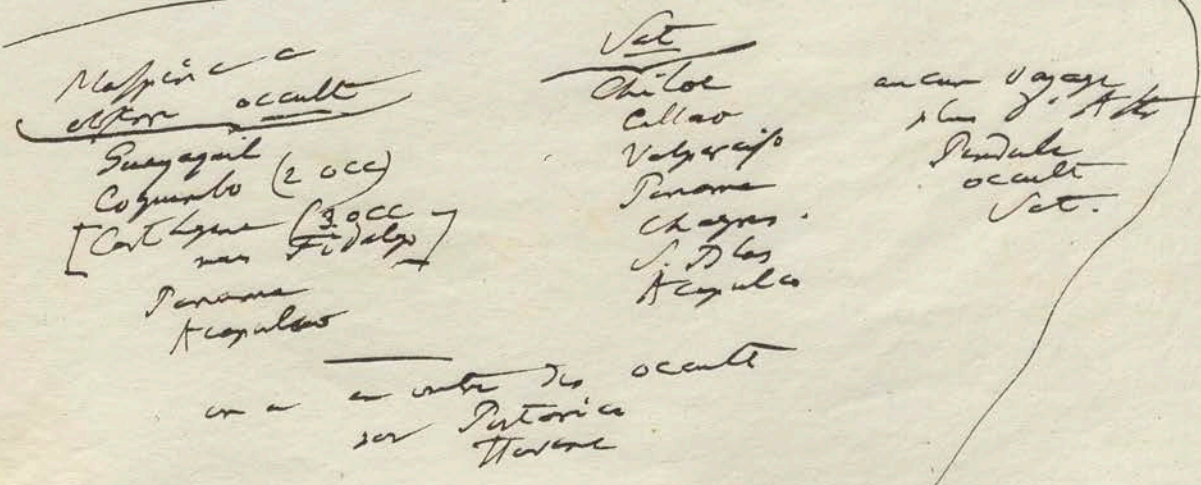 Malspina a
observé occult
Guayaquil
Coquimbo (2 occ)
[Carthagene (3 occ
mais Fidalgo]
Panama
Acapulco
Sat
Chiloe
Callao
Valparaiso
Panama
Chagres.
S. Blas
Acapulco
aucun voyage
plus d'Astr
Pendule
occult
Sat.
on a en outre des occult
Portorico
Havane